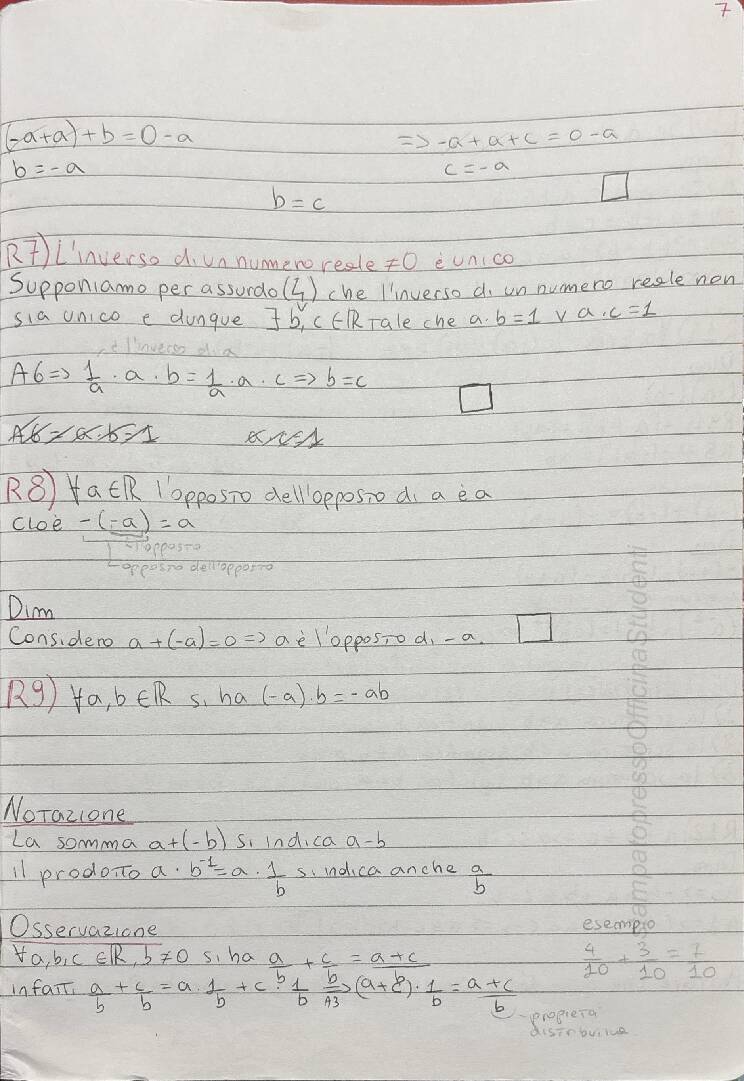 7
(-a+a)+b=0-a => -a+a+c=0-a
b=-a c=-a
b=c □
R7) L'inverso di un numero reale ≠0 è unico
Supponiamo per assurdo (↯) che l'inverso di un numero reale non
sia unico e dunque ∃ b, c ∈ ℝ tale che a·b=1 ∨ a·c=1
è l'inverso di a
A6 => 1/a · a · b = 1/a · a · c => b=c □
R8) ∀a∈ℝ l'opposto dell'opposto di a è a
cioè -(-a)=a
l'opposto
opposto dell'opposto
Dim
Considero a+(-a)=0 => a è l'opposto di -a. □
R9) ∀a,b∈ℝ si ha (-a)·b=-ab
Notazione
La somma a+(-b) si indica a-b
il prodotto a·b⁻¹=a·1/b si indica anche a/b
Osservazione
∀a,b,c ∈ℝ, b≠0 si ha a/b + c/b = a+c/b
infatti a/b + c/b = a·1/b + c·1/b => A3 (a+c)·1/b = a+c/b
propietà
distributiva
esempio
4/10 + 3/10 = 7/10
StampatopressoOfficinaStudenti